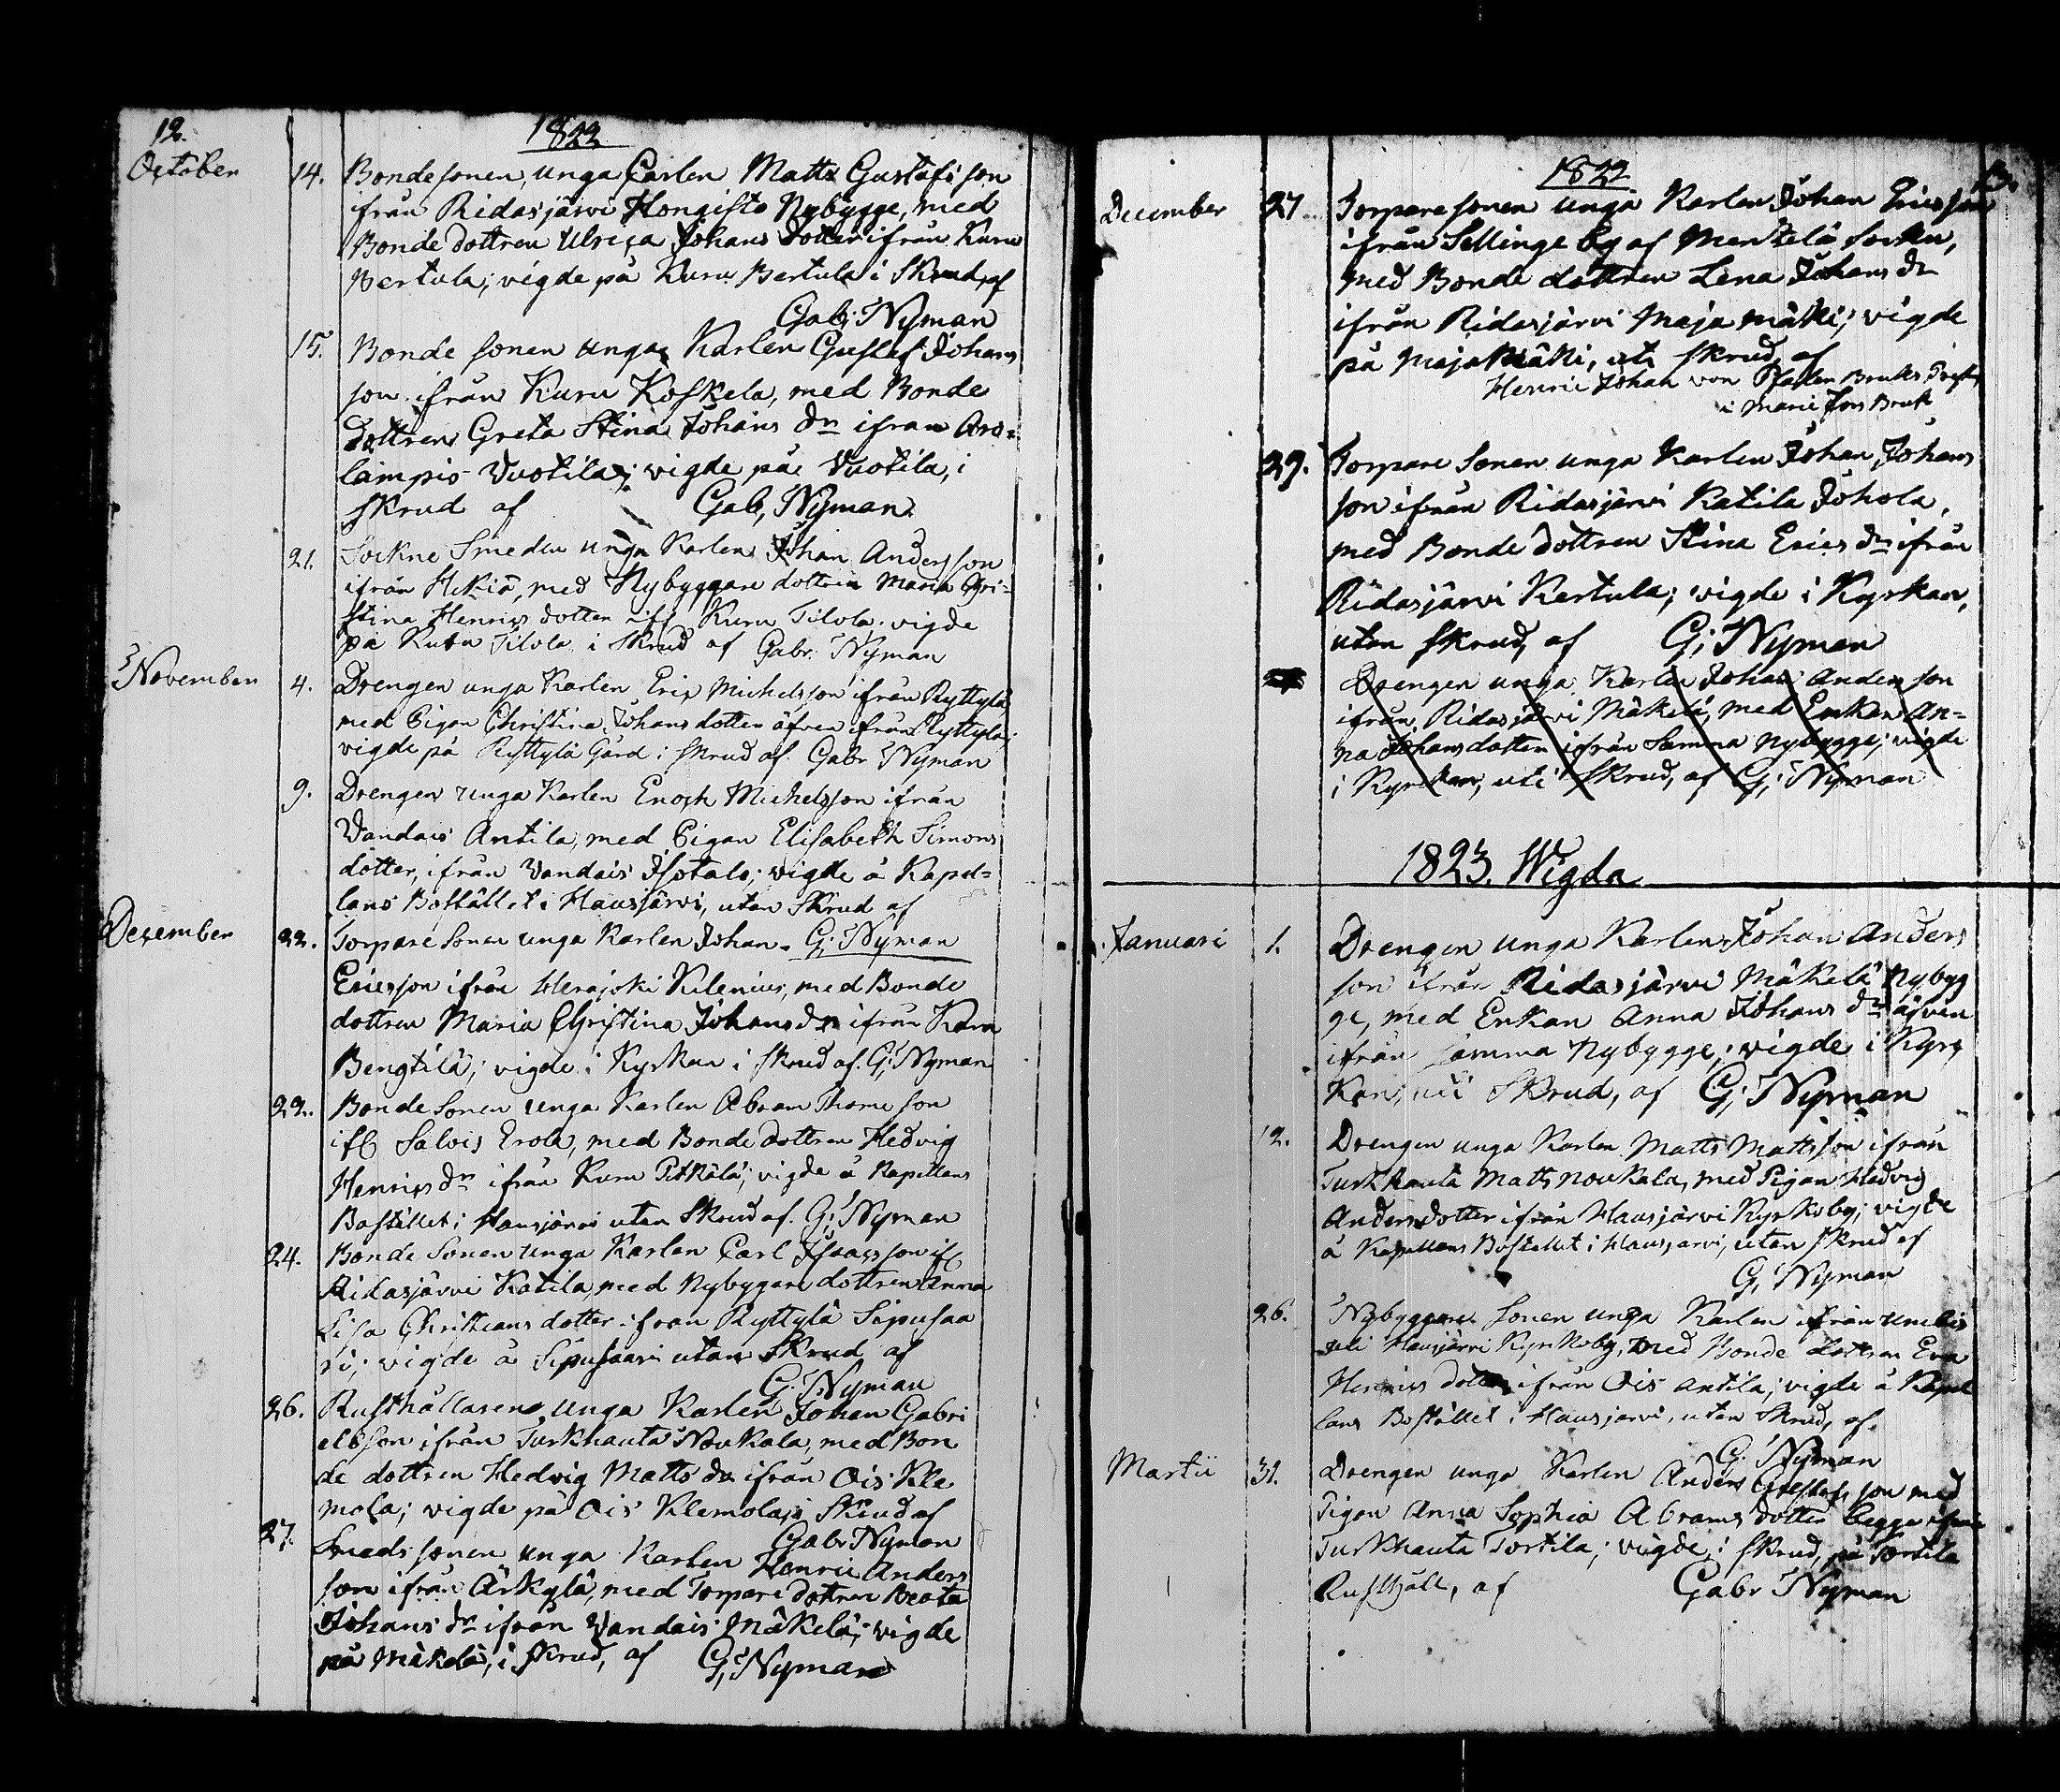 12.
1822
October 14. Bondesonen, unga Carlen Matts Gustafs son
ifrån Ridasjärvi Hongisto Nybygge, med
Bonde dottren Ulrica Johans dotter ifrån Kuru
Bertula; vigde på Kuru Bertula i Skrud, af
Gab; Nyman
15. Bonde sonen unga Karlen Gustaf Johans
son ifrån Kuru Koskela, med Bonde
dottren Greta Stina Johans dr ifran Aro=
lampis Vuotila; vigde på Vuotila, i
skrud af Gab, Nyman.
21. Sockne Smeden unga Karlen Johan Andersson
ifrån Hekiä, med Nybyggare dottren Maria Chri=
stina Henrics dotter ifr Kuru Tilola. vigde
på Kuru Tilola i Skrud af Gabr. Nyman
November 4. Drengen unga Karlen Eric Michelsson ifrån Ryttylä
med Pigan Christina Johans dotter äfven ifrån Ryttylä;
vigde på Ryttylä Gård i skrud af. Gabr Nyman
9. Drengen unga Karlen Enoch Michelsson ifrån
Vandais Antila, med Pigan Elisabeth Simons
dotter, ifrån Vandais Isotalo; vigde å Kapel=
lans Bostället i Hausjärvi, utan Skrud af
December 22. Torpare sonen unga Karlen Johan G; Nyman
Ericsson ifrån Herajoki Kilenius, med Bonde
dottren Maria Christina Johans dr ifrån Kara
Bengtilä; vigde i Kyrkan i skrud af. G; Nyman
22. Bonde sonen unga Karlen Abram Thome son
ifr Salois Erola, med Bonde dottren Hedvig
Henrics dr ifrån Kuru Pitkälä; vigde å Kapellans
Bostället i Hausjärvi utan Skrud af. G; Nyman
24. Bonde Sonen unga Karlen Carl Isaacs son ifr
Ridasjärvi Katila, med Nybygare dottren Anna
Lisa Christians dotter ifran Ryttylä Sipusaa
ri; vigde å Sipusaari utan Skrud af
G; Nyman
26. Rusthållaren unga Karlen Johan Gabri
elsson ifrån Turkhauta Noukala, med Bon
de dottren Hedvig Matts dr ifrån Ois Kle
mola; vigde på Ois Klemola, i Skrud af
Gabr Nyman
27. Smeds sonen unga Karlen Henric Anders
son ifrån Ärkylä, med Torpare dottren Beata
Johans dr ifrån Vandais Mäkelä; vigde
på Mäkelä, i skrud, af G; Nyman
13.
1822
December 27. Torpare sonen unga Karlen Johan Ericsson
ifrån Sellinge by af Mentzelä sockn,
med Bonde dottren Lena Johans dr
ifrån Ridasjärvi Maja mäki; vigde
på Majamäki, uti skrud, af
Henric Johan von Pfaler Bruks Prest
i Marie fors Bruk
29. Torpare Sonen unga Karlen Johan Johans
son ifrån Ridasjärvi Katila Johola,
med Bonde dottren Stina Erics dr ifrån
Ridasjärvi Kertula; vigde i Kyrkan,
utan skrud, af G; Nyman
Drengen unga Karlen Johan Anders son
ifrån Ridasjärvi Mäkelä, med Enkan An=
na Johans dotter ifrån Samma Nybygge; vigde
i Kyrkan, uti skrud, af G; Nyman
1823. Wigda
Januari 1. Drengen unga Karlen Johan Anders
son ifrån Ridasjärvi Mäkelä Nybyg
ge, med Enkan Anna Johans dr äfven
ifrån samma Nybygge; vigde i Kyrc
kan, uti Skrud, af G; Nyman
12. Drengen unga Karlen Matts Mattsson ifrån
Turkhauta Matts Noukala, med Pigan Hedvig
Anders dotter ifrån Hausjärvi Kyrkoby; vigde
å Kapellans Bostället i Hausjärvi, utan skrud af
G; Nyman
26. Nybyggare Sonen unga Karlen ifrån
Hausjärvi Kyrkoby, med Bonde dottren Eva
Henrics dotter ifrån Ois Antila; vigde å Kapel
lans Bostället i Hausjärvi, utan Skrud, af.
G; Nyman
Martii 31. Drengen unga Karlen Anders Gustafs son med
Pigan Anna Sophia Abrams dotter begge ifrån
Turkhauta Tortila; vigde i skrud, på Tortila
Rusthåll, af Gabr Nyman